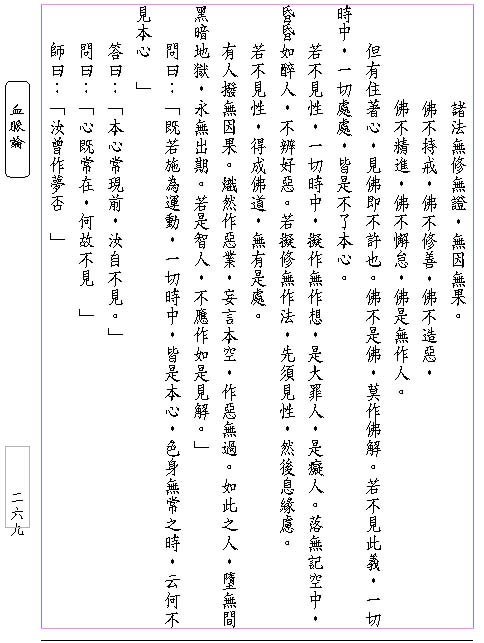 諸法無修無證，無因無果。
佛不持戒，佛不修善，佛不造惡，
佛不精進，佛不懈怠，佛是無作人。
但有住著心，見佛即不許也。佛不是佛，莫作佛解。若不見此義，一切
時中，一切處處，皆是不了本心。
若不見性，一切時中，擬作無作想，是大罪人，是癡人。落無記空中，
昏昏如醉人，不辨好惡。若擬修無作法，先須見性，然後息緣慮。
若不見性，得成佛道，無有是處。
有人撥無因果。熾然作惡業，妄言本空，作惡無過。如此之人，墮無間
黑暗地獄，永無出期。若是智人，不應作如是見解。」
問曰：「既若施為運動，一切時中，皆是本心，色身無常之時，云何不
見本心　」
答曰：「本心常現前，汝自不見。」
問曰：「心既常在，何故不見　」
師曰：「汝曾作夢否　」
血脈論
二六九